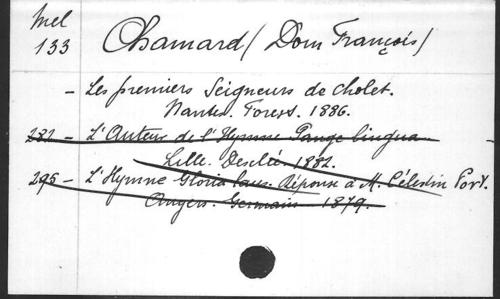 Mel
133
Chamard (Dom François)
- Les premiers Seigneurs de Cholet.
Nantes. Forest. 1886.
282 - L'Auteur de l'Hymne Pange lingua
Lille. Desclée. 1882.
295 - L'Hymne Gloria laus. Réponse à M. Célestin Port.
Angers. Germain 1879.